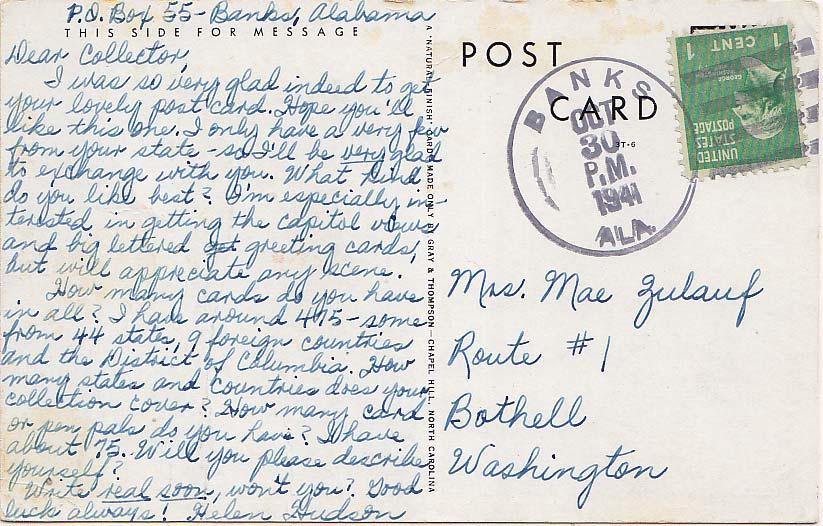 P.O. Box 55-Banks, Alabama
THIS SIDE FOR MESSAGE
Dear Collector,
I was so very glad indeed to get
your lovely post card. Hope you'll
like this one. I only have a very few
from your state - so I'll be very glad
to exchange with you. What kind
do you like best? I'm especially in-
terested in getting the capitol views
and big lettered get greeting cards,
but will appreciate any scene.
How many cards do you have
in all? I have around 475-some
from 44 states, 9 foreign countries
and the District of Columbia. How
many states and countries does your
collection cover? How many card
or pen pals do you have? I have
about 75. Will you please describe
yourself?
Write real soon, won't you? Good
luck always! Helen Hudson
A "NATURAL FINISH" CARD MADE ONLY BY GRAY & THOMPSON - CHAPEL HILL, NORTH CAROLINA
POST
CARD
BANKS
OCT
30
P.M.
1941
ALA.
T-6
UNITED
STATES
POSTAGE
GEORGE
WASHINGTON
1 CENT 1
Mrs. Mae Zulauf
Route #1
Bothell
Washington